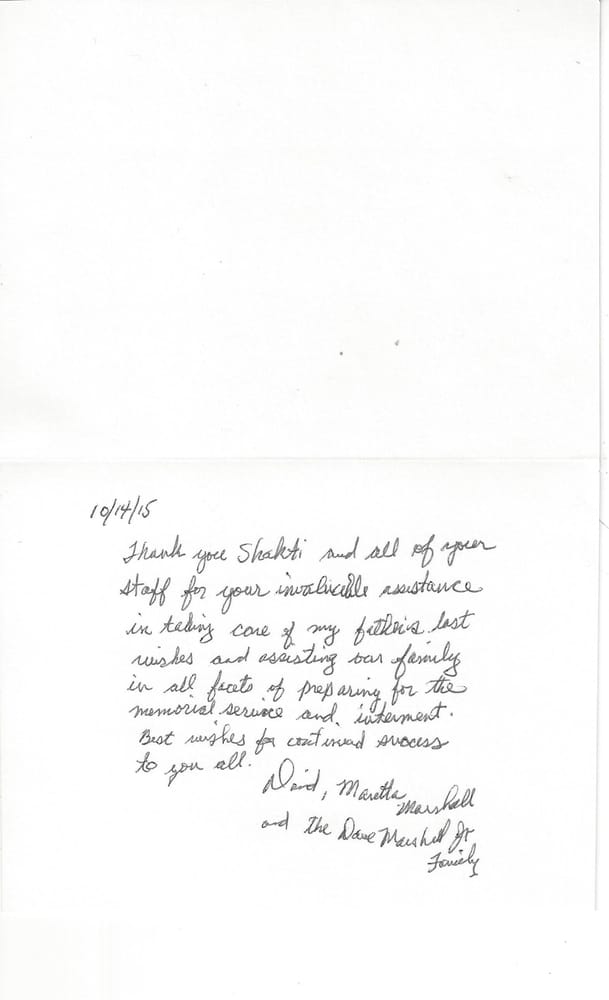 10/14/15
Thank you Shakti and all of your
staff for your invaluable assistance
in taking care of my father's last
wishes and assisting our family
in all facets of preparing for the
memorial service and interment.
Best wishes for continued success
to you all.
David, Maretta Marshall
and the Dave Marshall Jr
Family